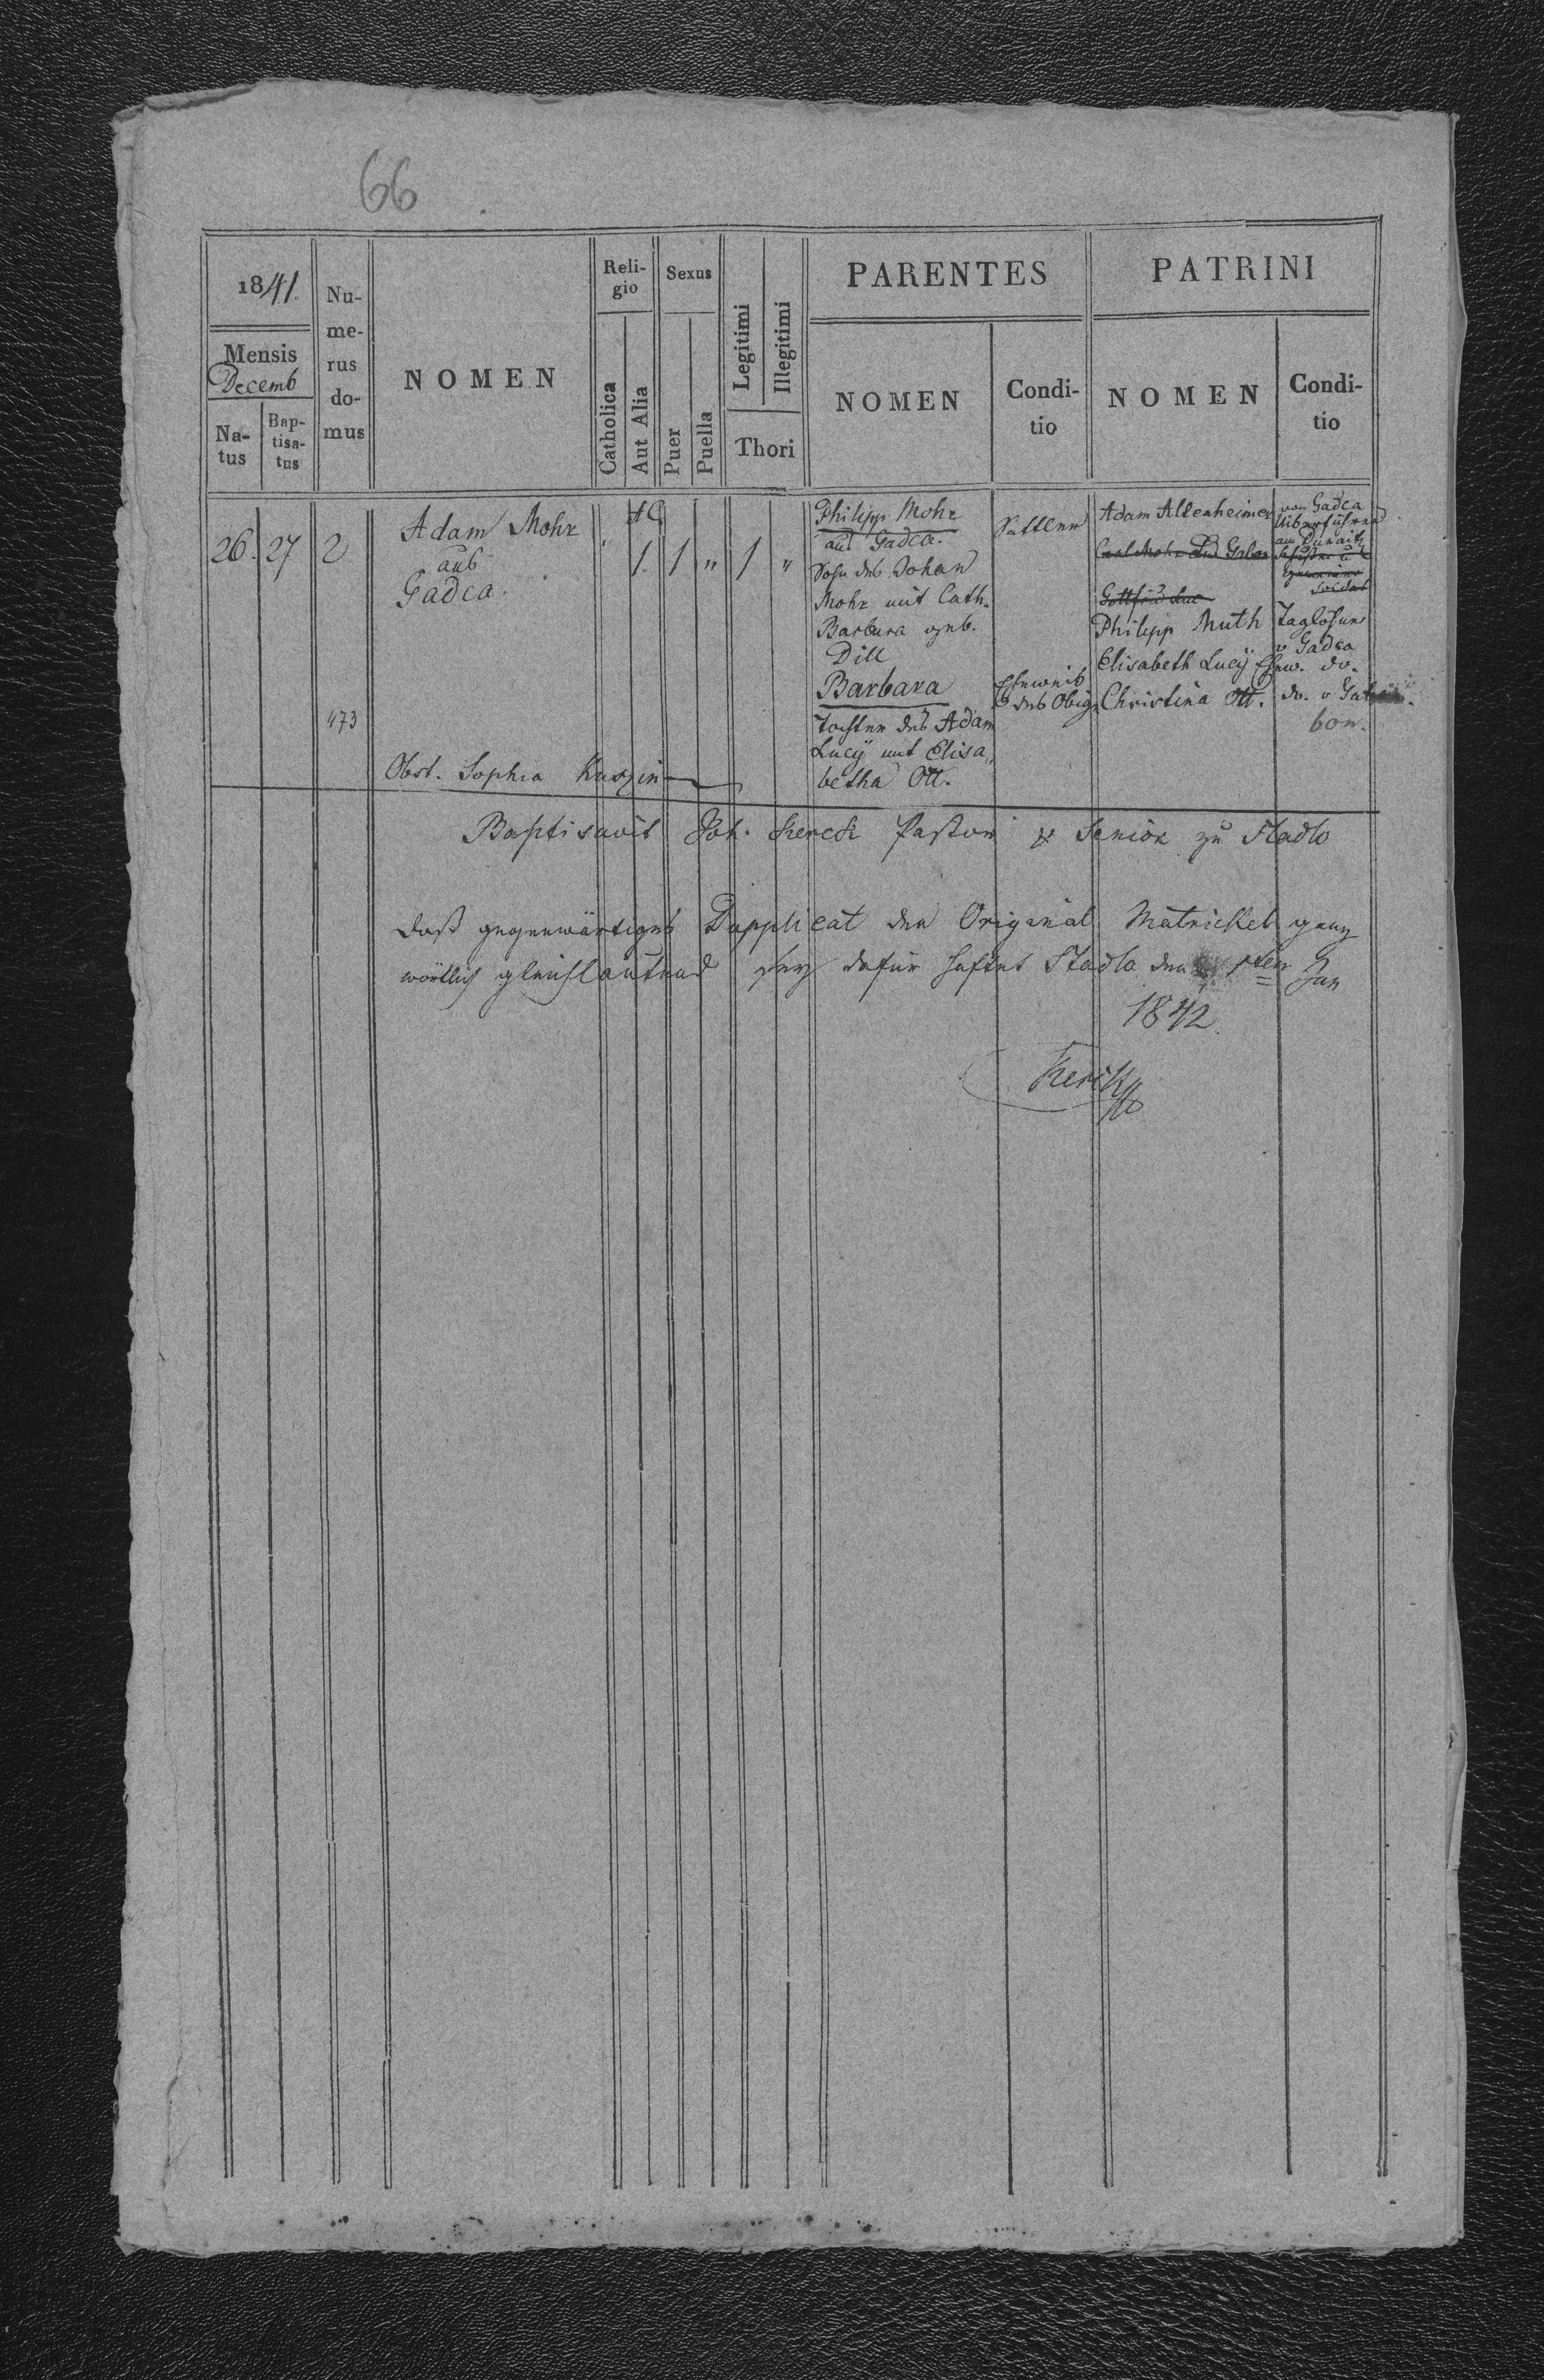 66
1841.
Mensis
Decemb
Natus
Baptisatus
Numerus domus
NOMEN
Religio
Catholica
Aut Alia
Sexus
Puer
Puella
Legitimi
Illegitimi
Thori
PARENTES
NOMEN
Conditio
PATRINI
NOMEN
Conditio
26. 27 2
Adam Mohr
aus
Gadca.
" AC
1. 1 " 1 "
Philipp Mohr
aus Gadca.
Sohn des Johan
Mohr mit Cath.
Barbara geb.
Dill
Barbara
Tochter des Adam
Lucÿ mit Elisa„
betha Ott.
Sattler
Eheweib
des Obign
Adam Altenheimer
Carl Mohr
Gottfrid
Philipp Muth
Elisabeth Lucÿ Ehew.
Christina Ott.
von Gadca
Überführer
am Dunaitz
Soldat
Taglöhner
v Gadca
do.
do. v
bon.
473
Obst. Sophia
Baptisavit Joh. Kerck Pastor & Senior zu Stadlo
Daß gegenwärtiges Dupplicat der Original Matrickel ganz
wörtlich gleichlautend sey dafür haftet Stadlo den 1ten Jan
1842.